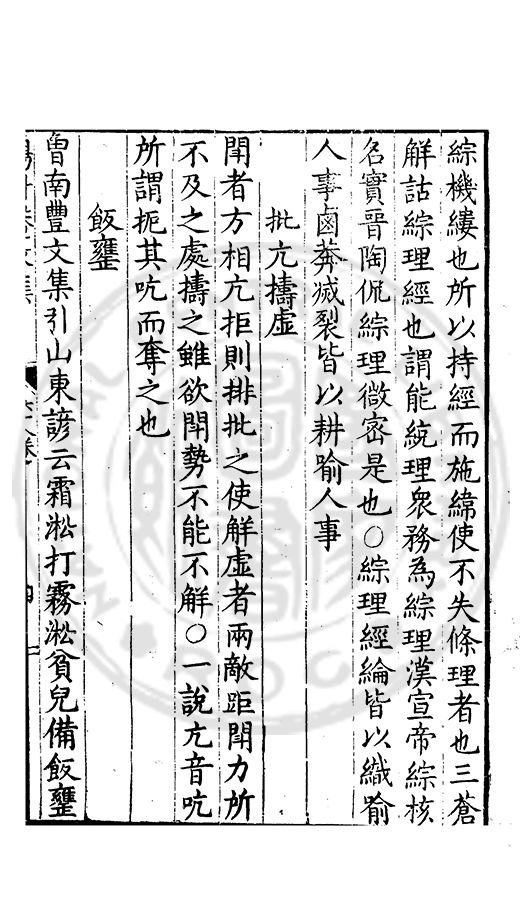 綜機縷也所以持經而施緯使不失條理者也三蒼
解詁綜理經也謂能統理衆務為綜理漢宣帝綜核
名實晉陶侃綜理微密是也○綜理經綸皆以織喻
人事鹵莽滅裂皆以耕喻人事
批亢擣虛
鬭者方相亢拒則排批之使解虛者兩敵距鬭力所
不及之處擣之雖欲鬭勢不能不解○一說亢音吭
所謂扼其吭而奪之也
飯罋
曾南豐文集引山東諺云霜淞打霧淞貧兒備飯罋